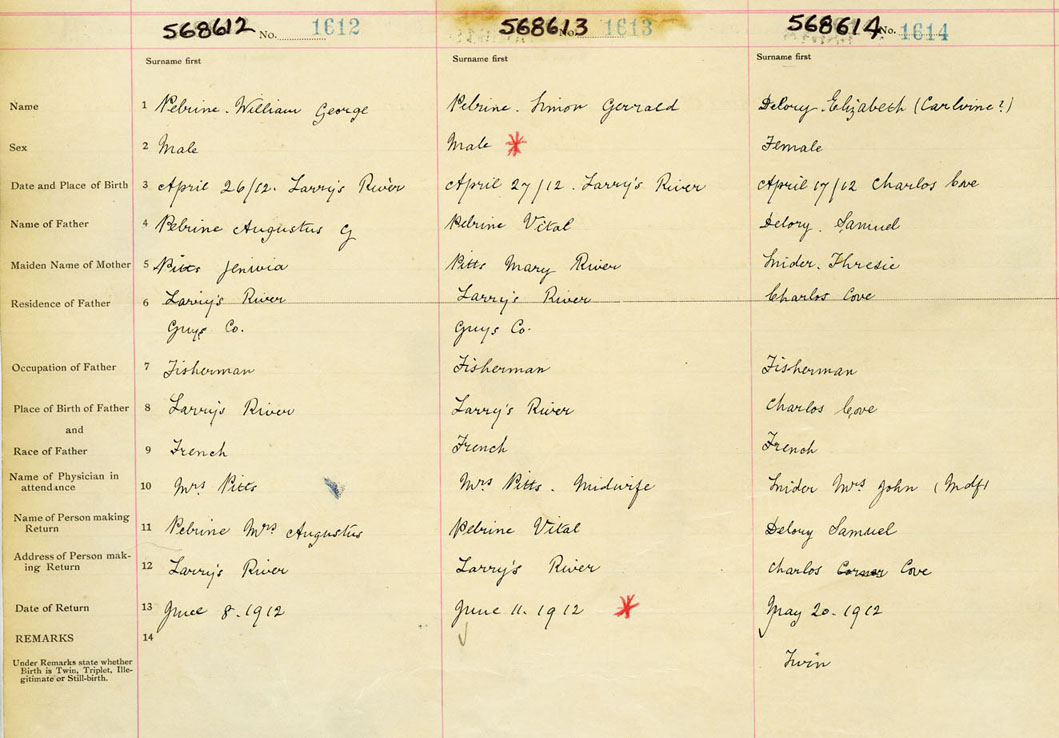 568612 No. 1612 568613 No. 1613 568614 No. 1614
Surname first Surname first Surname first
Name 1 Pelrine. William George Pelrine. Simon Gerrald Delory. Elizabeth (Carlvine?)
Sex 2 Male Male Female
Date and Place of Birth 3 April 26/12. Larry's River April 27/12. Larry's River April 17/12 Charlos Cove
Name of Father 4 Pelrine Augustus G Pelrine Vital Delory. Samuel
Maiden Name of Mother 5 Pitts Jenivia Pitts Mary River Snider. Thresie
Residence of Father 6 Larry's River Larry's River Charlos Cove
Guys Co. Guys Co.
Occupation of Father 7 Fisherman Fisherman Fisherman
Place of Birth of Father 8 Larry's River Larry's River Charlos Cove
and
Race of Father 9 French French French
Name of Physician in
attendance 10 Mrs Pitts Mrs Pitts. Midwife Snider Mrs John (Mdf)
Name of Person making
Return 11 Pelrine Mrs Augustus Pelrine Vital Delory Samuel
Address of Person mak-
ing Return 12 Larry's River Larry's River Charlos Corner Cove
Date of Return 13 June 8. 1912 June 11. 1912 May 20. 1912
REMARKS 14
Under Remarks state whether
Birth is Twin, Triplet, Ille-
gitimate or Still-birth.
Twin